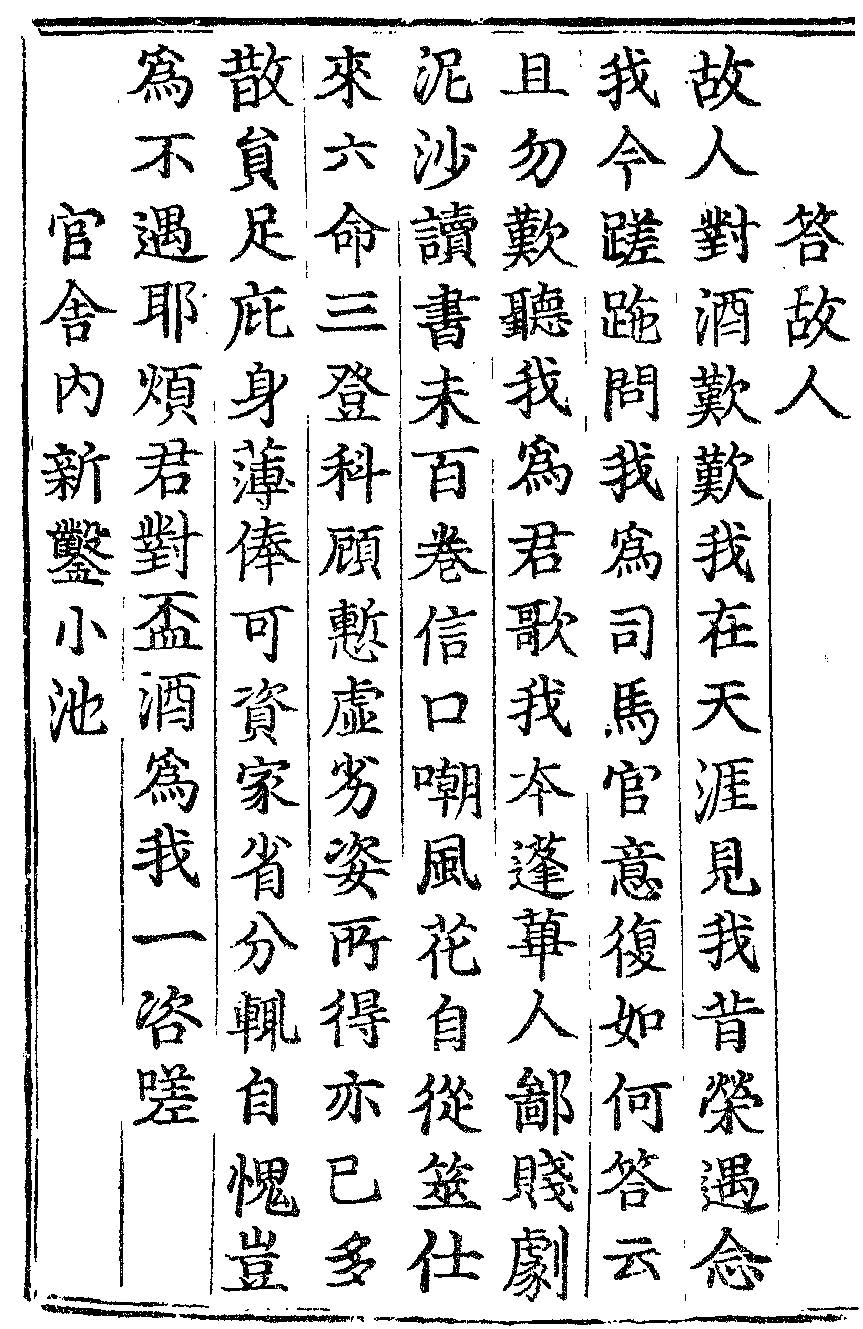 答故人
故人對酒歎歎我在天涯見我昔榮遇念
我今蹉跎問我爲司馬官意復如何答云
且勿歎聽我爲君歌我本蓬蓽人鄙賤劇
泥沙讀書未百卷信口嘲風花自從筮仕
來六命三登科顧慙虛劣姿所得亦已多
散貟足庇身薄俸可資家省分輒自愧豈
爲不遇耶煩君對盃酒爲我一咨嗟
官舍內新鑿小池